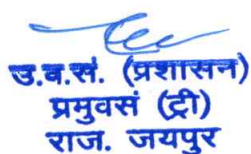 उ.व.सं. (प्रशासन)
प्रमुवसं (ट्री)
राज. जयपुर